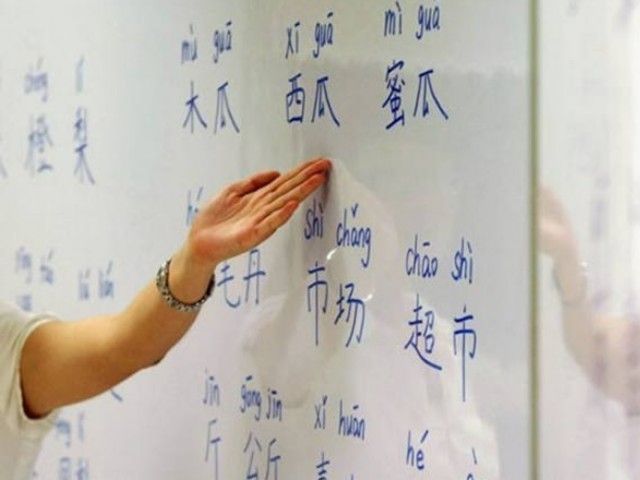 chéng lí mù guā xī guā mì guā
橙 梨 木瓜 西瓜 蜜瓜
liú lián shì chǎng chāo shì
毛丹 市场 超市
jīn gōng jīn xǐ huān hé
斤 公斤